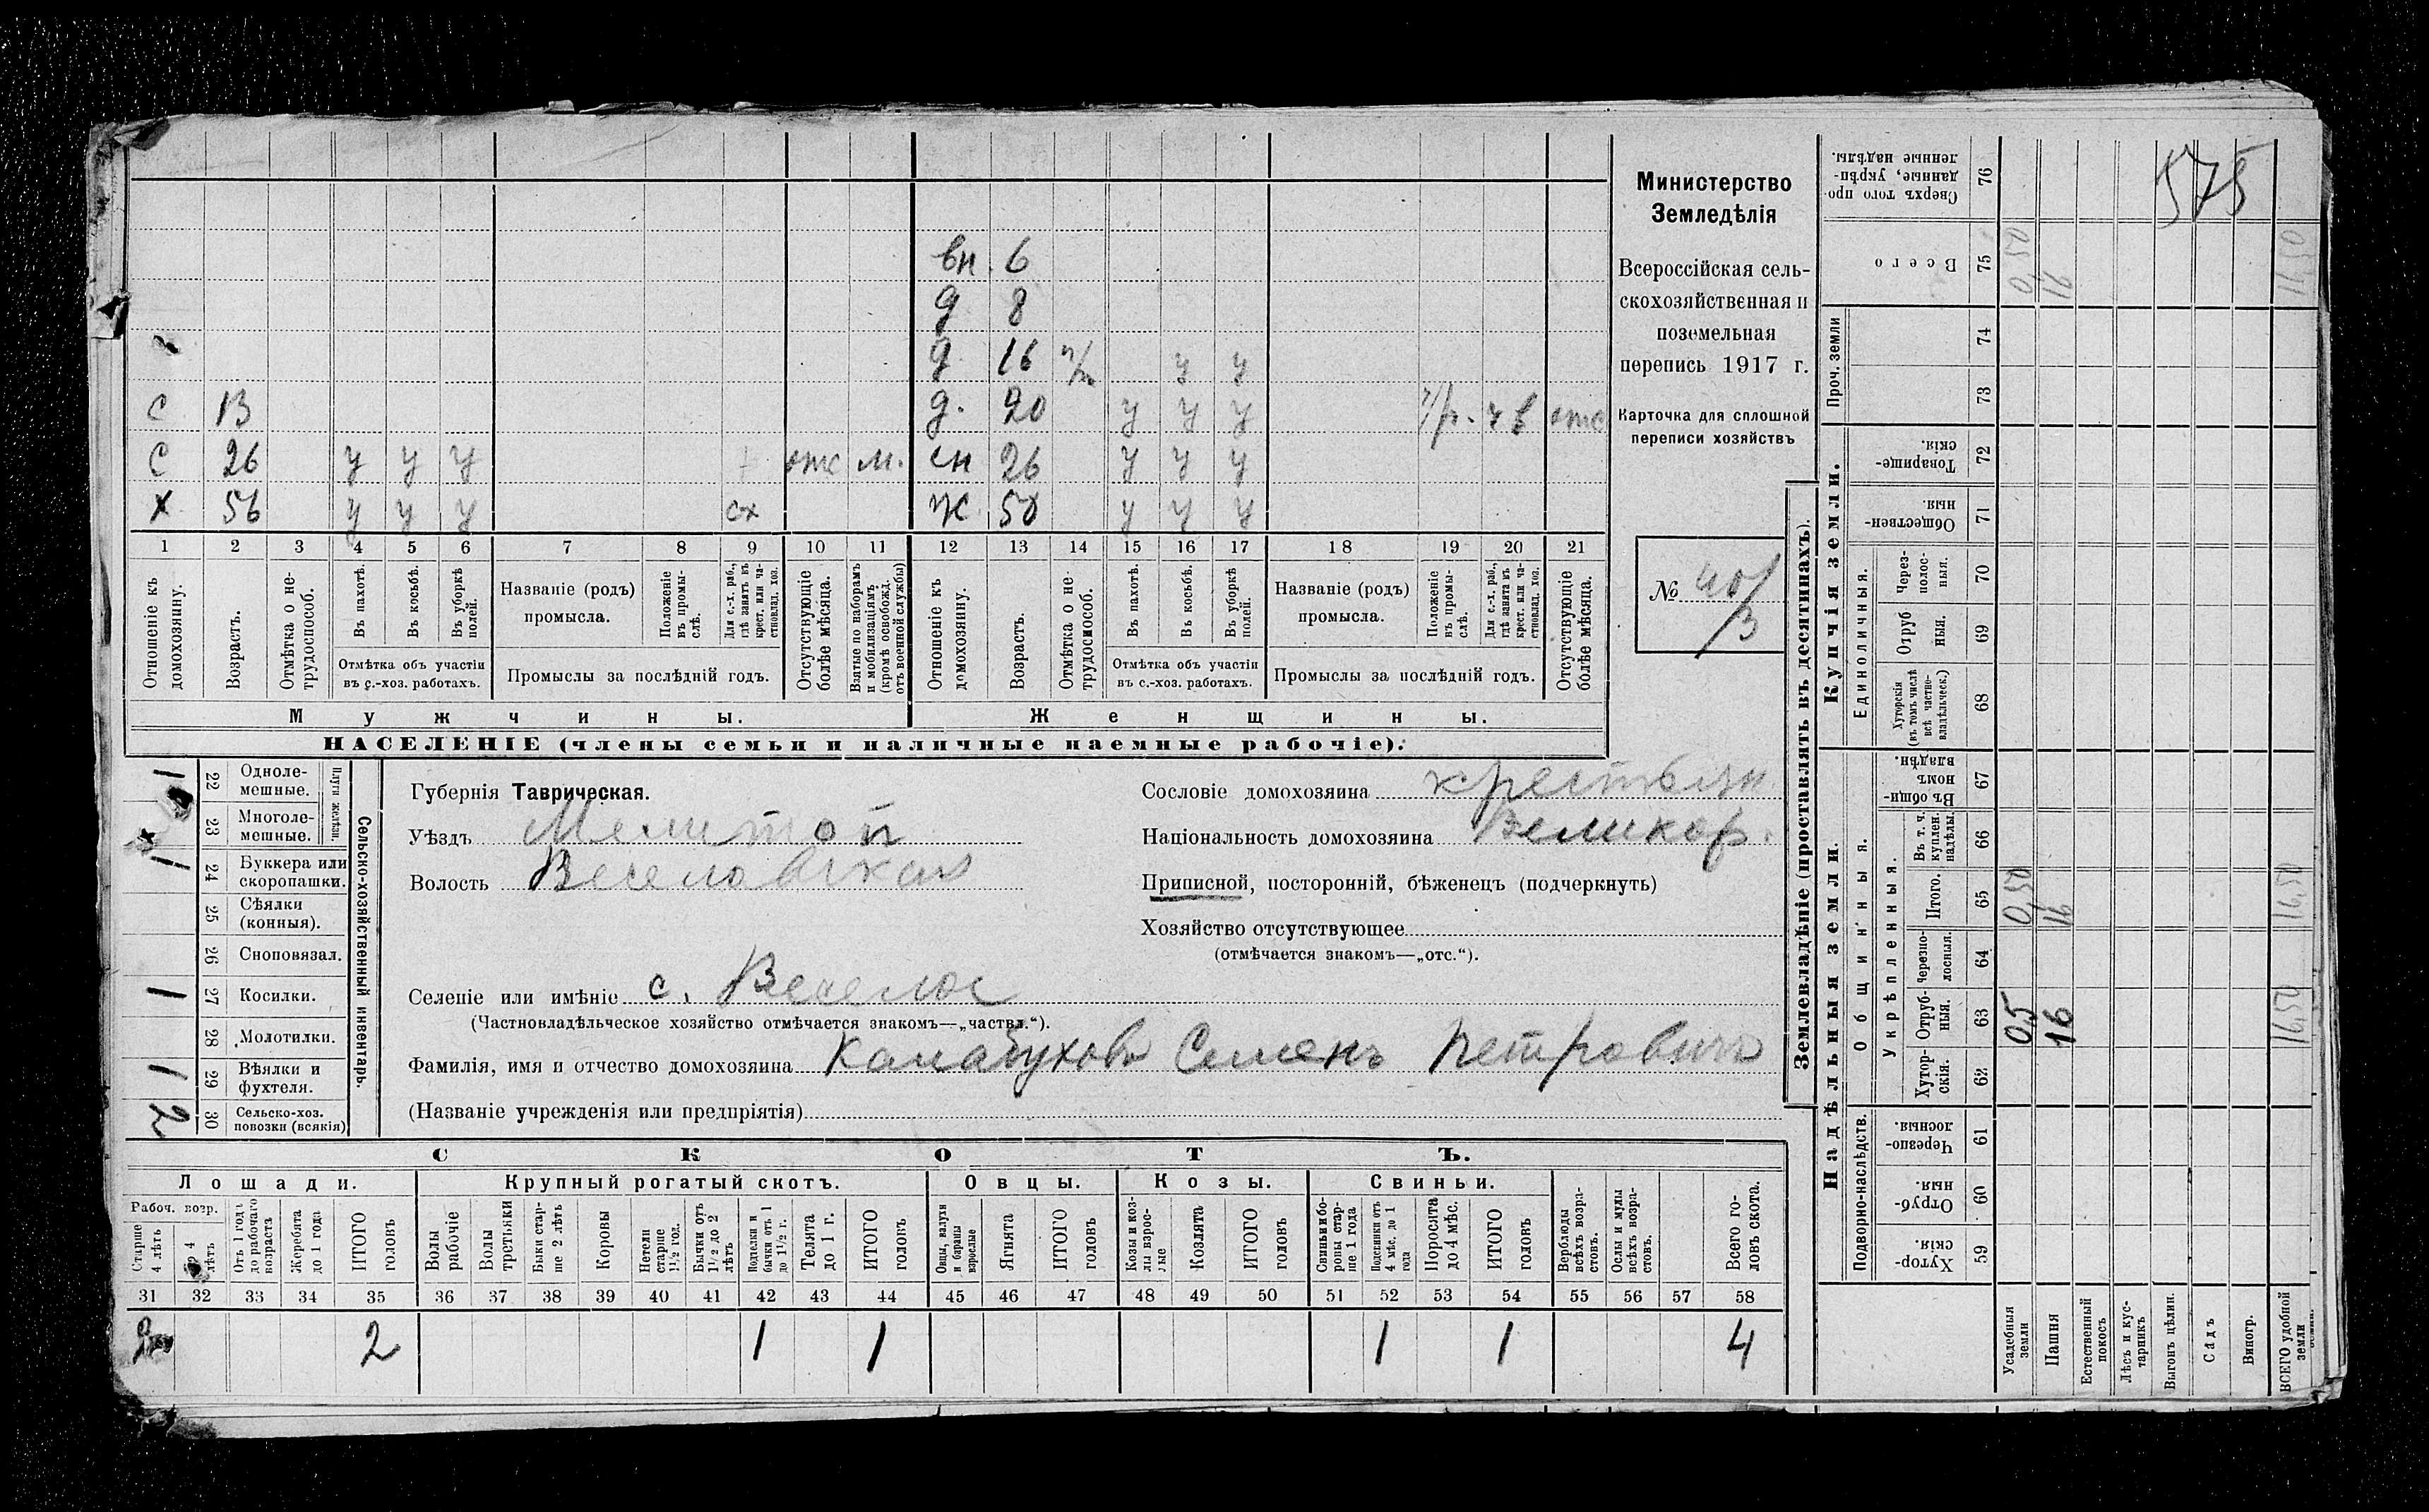 575
Министерство
Земледѣлія
Всероссійская сель-
скохозяйственная и
поземельная
перепись 1917 г.
Карточка для сплошной
переписи хозяйствъ
№ 40/3
вн. 6
д 8
д 16 у у
С 13 д. 20 у у у отс
С 26 у у у отс м. сн 26 у у у
Х 56 у у у сх Ж 50 у у у
1 2 3 4 5 6 7 8 9 10 11 12 13 14 15 16 17 18 19 20 21
Отношеніе къ домохозяину.
Возрастъ.
Отмѣтка о не-трудоспособ.
Въ пахотѣ.
Въ косьбѣ.
Въ уборкѣ полей.
Отмѣтка объ участіи
въ с.-хоз. работахъ.
Названіе (родъ)
промысла.
Положеніе въ промы-слѣ.
Для с.-х. раб., гдѣ занятъ въ крест. или ча-стновлад. хоз.
Промыслы за послѣдній годъ.
Отсутствующіе болѣе мѣсяца.
Взятые по наборамъ и мобилизаціямъ (кромѣ освобожд. отъ военной службы)
Отношеніе къ домохозяину.
Возрастъ.
Отмѣтка о не трудоспособ.
Въ пахотѣ.
Въ косьбѣ.
Въ уборкѣ полей.
Отмѣтка объ участіи
въ с.-хоз. работахъ.
Названіе (родъ)
промысла.
Положеніе въ промы-слѣ.
Для с.-х. раб., гдѣ занята въ крест. или ча-стновлад. хоз.
Промыслы за послѣдній годъ.
Отсутствующіе болѣе мѣсяца.
Мужчины. Женщины.
НАСЕЛЕНІЕ (члены семьи и наличные наемные рабочіе).
Сельско-хозяйственный инвентарь.
Плуги желѣзн.
1 22 Одноле-мешные.
23 Многоле-мешные.
1 24 Буккера или скоропашки.
25 Сѣялки (конныя).
26 Сноповязал.
1 27 Косилки.
28 Молотилки.
1 29 Вѣялки и фухтеля.
2 30 Сельско-хоз. повозки (всякія)
Губернія Таврическая.
Уѣздъ Мелитоп
Волость Веселовская
Сословіе домохозяина крестьян
Національность домохозяина Великор.
Приписной, посторонній, бѣженецъ (подчеркнуть)
Хозяйство отсутствующее
(отмѣчается знакомъ—„отс.“).
Селеніе или имѣніе с. Веселое
(Частновладѣльческое хозяйство отмѣчается знакомъ—„частвл.“).
Фамилія, имя и отчество домохозяина Калабуховъ Семенъ Петровичъ
(Названіе учрежденія или предпріятія)
СКОТЪ.
Лошади. Крупный рогатый скотъ. Овцы. Козы. Свиньи.
Рабоч. возр.
Старше 4 лѣтъ
До 4 лѣтъ
Отъ 1 года до рабочаго возраста
Жеребята до 1 года
ИТОГО головъ
Волы рабочіе
Волы третьяки
Быки стар-ше 2 лѣтъ
Коровы
Нетели старше 1½ год.
Бычки отъ 1½ до 2 лѣтъ
Подтелки и бычки отъ 1 до 1½ г.
Телята до 1 г.
ИТОГО головъ
Овцы, валухи и бараны взрослые
Ягнята
ИТОГО головъ
Козы и коз-лы взрос-лые
Козлята
ИТОГО головъ
Свиньи и бо-ровы стар-ше 1 года
Подсвинки отъ 4 мѣс. до 1 года
Поросята до 4 мѣс.
ИТОГО головъ
Верблюды всѣхъ возра-стовъ.
Ослы и мулы всѣхъ возра-стовъ.
Всего го-ловъ скота.
31 32 33 34 35 36 37 38 39 40 41 42 43 44 45 46 47 48 49 50 51 52 53 54 55 56 57 58
2 2 1 1 1 1 4
Землевладѣніе (проставлять въ десятинахъ).
Надѣльныя земли.
Купчія земли.
Подворно-наслѣдств.
Общинныя.
Укрѣпленныя.
Единоличныя.
Проч. земли
Хутор-скія. 59
Отруб-ныя. 60
Черезпо-лосныя. 61
Хутор-скія. 62
Отруб-ныя. 63 05 16 16,50
Черезпо-лосныя. 64
Итого. 65 0,50 16 16,50
Въ т. ч. куплен. надѣлы. 66
Въ общи-номъ владѣн. 67
Хуторскія (въ томъ числѣ всѣ частно-владѣльческ.) 68
Отруб ныя. 69
Через-полос-ныя. 70
Обществен-ныя. 71
Товарище-скія. 72
73
74
Всего 75 0,50 16
Сверхъ того про данные, укрѣп-ленные надѣлы. 76
Усадебныя земли
Пашня
Естественный покосъ
Лѣсъ и кус-тарникъ
Выгонъ цѣлин.
Садъ
Виногр.
ВСЕГО удобной земли